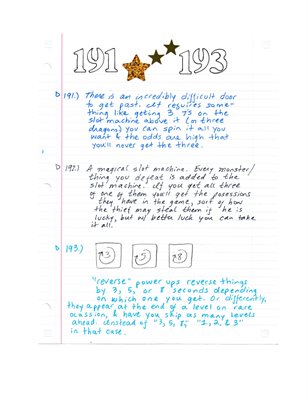 191 193
191.) There is an incredibly difficult door
to get past. It requires some-
thing like geting 3 7s on the
slot machine above it (or three
dragons) you can spin it all you
want & the odds are high that
you'll never get the three.
192.) A magical slot machine. Every monster/
thing you defeat is added to the
slot machine. If you get all three
of one of them you'll get the possessions
they have in the game, sort of how
the thief may steal them if he is
lucky, but w/ better luck you can take
it all.
193.)
3 5 8
"reverse" power ups reverse things
by 3, 5, or 8 seconds depending
on which one you get. Or differently,
they appear at the end of a level on rare
ocassion, & have you skip as many levels
ahead. Instead of "3, 5, 8," "1, 2, & 3"
in that case.